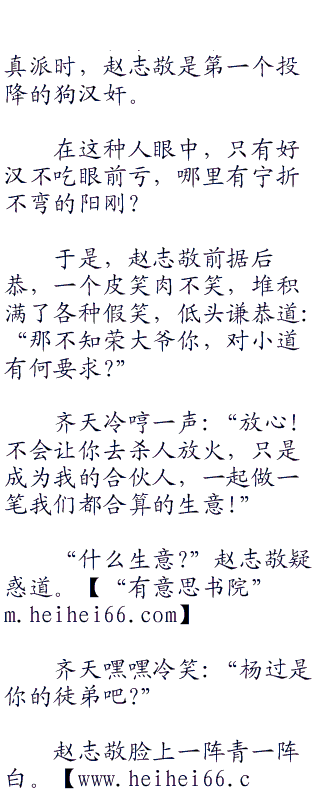 真派时，赵志敬是第一个投
降的狗汉奸。
在这种人眼中，只有好
汉不吃眼前亏，哪里有宁折
不弯的阳刚？
于是，赵志敬前据后
恭，一个皮笑肉不笑，堆积
满了各种假笑，低头谦恭道：
“那不知荣大爷你，对小道
有何要求？”
齐天冷哼一声：“放心！
不会让你去杀人放火，只是
成为我的合伙人，一起做一
笔我们都合算的生意！”
“什么生意？”赵志敬疑
惑道。【“有意思书院”
m.heihei66.com】
齐天嘿嘿冷笑：“杨过是
你的徒弟吧？”
赵志敬脸上一阵青一阵
白。【www.heihei66.c